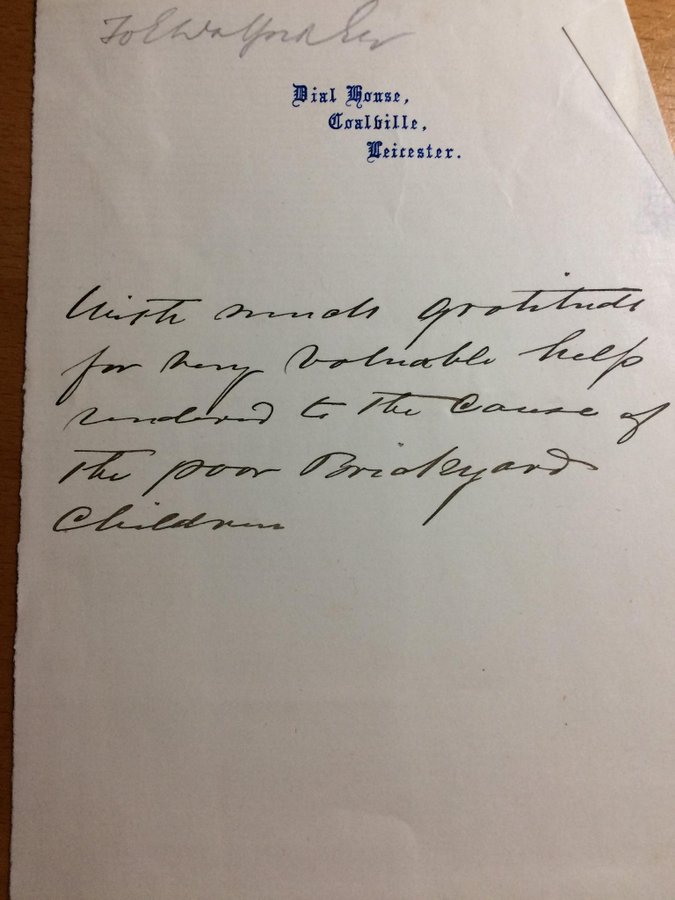 To E Walford Esq
Dial House,
Coalville,
Leicester.
With much gratitude
for very valuable help
rendered to the Cause of
the poor Brickyard
Children